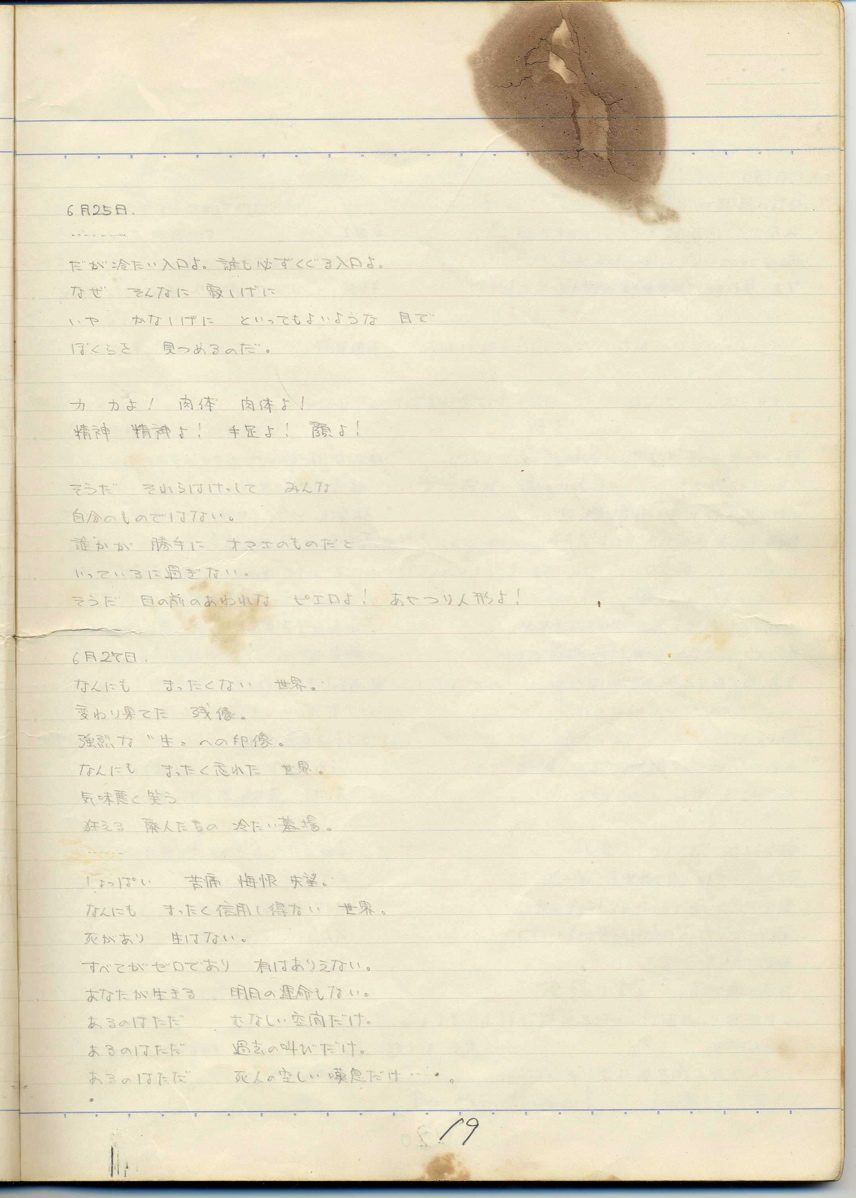 6月25日.
‥‥‥‥
だが冷たい入口よ。誰も必ずくぐる入口よ。
なぜ そんなに 寂しげに
いや かなしげに といってもよいような 目で
ぼくらを 見つめるのだ。
力 力よ! 肉体 肉体よ!
精神 精神よ! 手足よ! 顔よ!
そうだ それらはけっして みんな
自分のものではない。
誰かが 勝手に オマエのものだと
いっているに過ぎない.
そうだ 目の前のあわれな ピエロよ! あやつり人形よ!
6月27日.
なんにも まったくない 世界。
変わり果てた 残像。
強烈な “生„ への印像。
なんにも まったく忘れた 世界。
気味悪く笑う
狂える 廃人たちの 冷たい墓場。
‥‥‥
しょっぱい 苦痛 悔恨 失望。
なんにも まったく信用し得ない 世界。
死があり 生はない。
すべてがゼロであり 有はありえない。
あなたが生きる 明日の運命もない。
あるのはただ むなしい空間だけ。
あるのはただ 過去の叫びだけ。
あるのはただ 死人の空しい嘆息だけ‥‥。
19